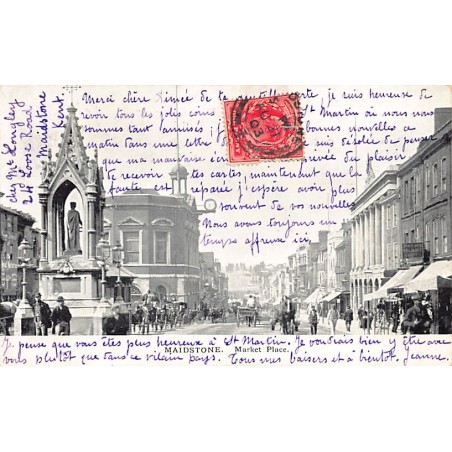 chez Mr Longley
24 Loose Road
Maidstone
Kent.
Merci chère Aimée de ta gentille carte, je suis heureuse de
revoir tous les jolis coins St Martin où nous nous
sommes tant amusés, bonnes nouvelles ce
matin dans une lettre suis désolée de penser
que ma mauvaise privée du plaisir
de recevoir tes cartes maintenant que la
faute est réparée j'espère avoir plus
souvent de vos nouvelles.
Nous avons toujours un
temps affreux ici.
MAIDSTONE. Market Place.
Je pense que vous êtes plus heureux à St Martin. Je voudrais bien y être avec
vous plutôt que dans ce vilain pays. Tous mes baisers et à bientôt. Jeanne.